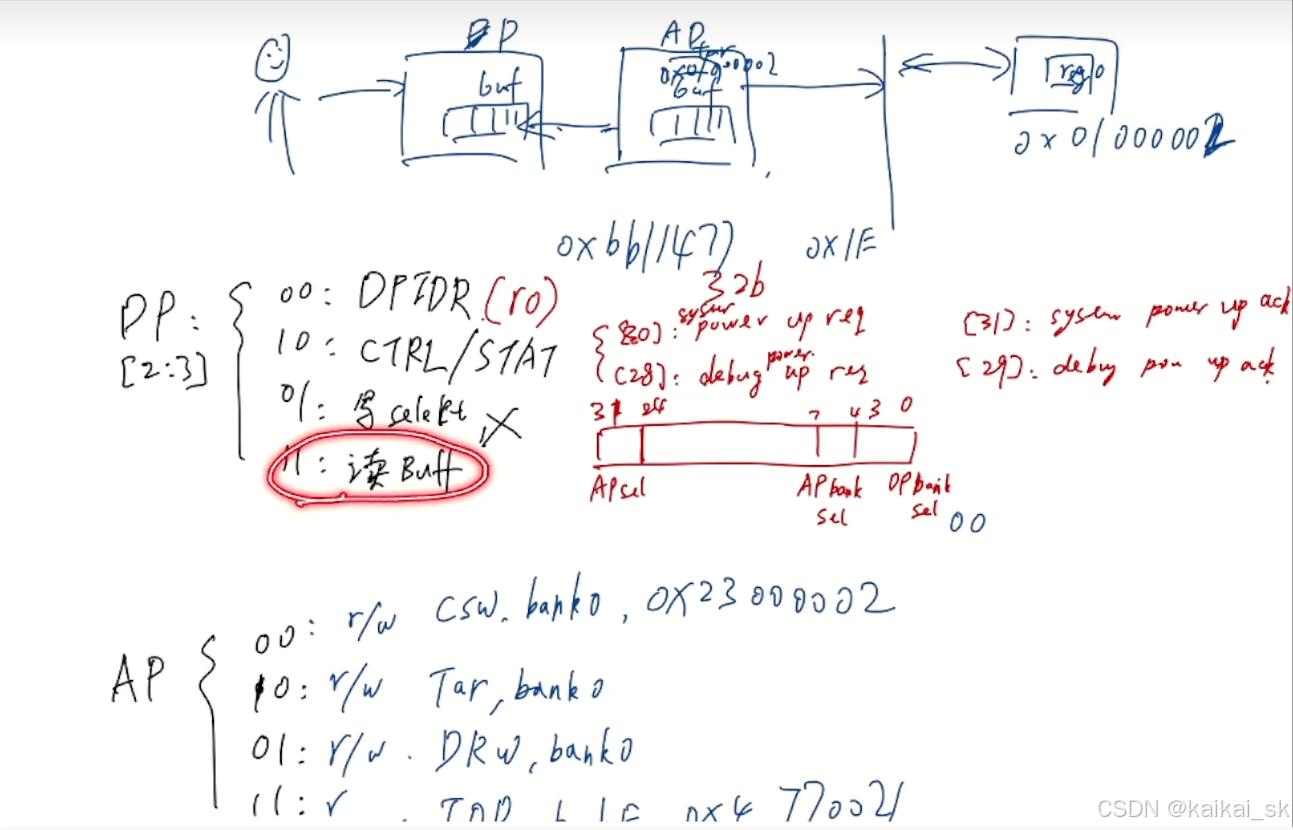 DP AP
tar
buf 0x01000002 reg0
buf
0x01000002
0xbb11477 0x1E
32b
DP: 00: DPIDR (ro) [30]: system power up req [31]: system power up ack
[2:3] 10: CTRL/STAT [28]: debug power up req [29]: debug pow up ack
01: 写 select
31 24 7 4 3 0
11: 读 Buff
APsel APbank sel DPbank sel 00
AP 00: r/w CSW. bank0, 0x23000002
10: r/w Tar, bank0
01: r/w. DRW, bank0
11: r 0x4770021
CSDN @kaikai_sk